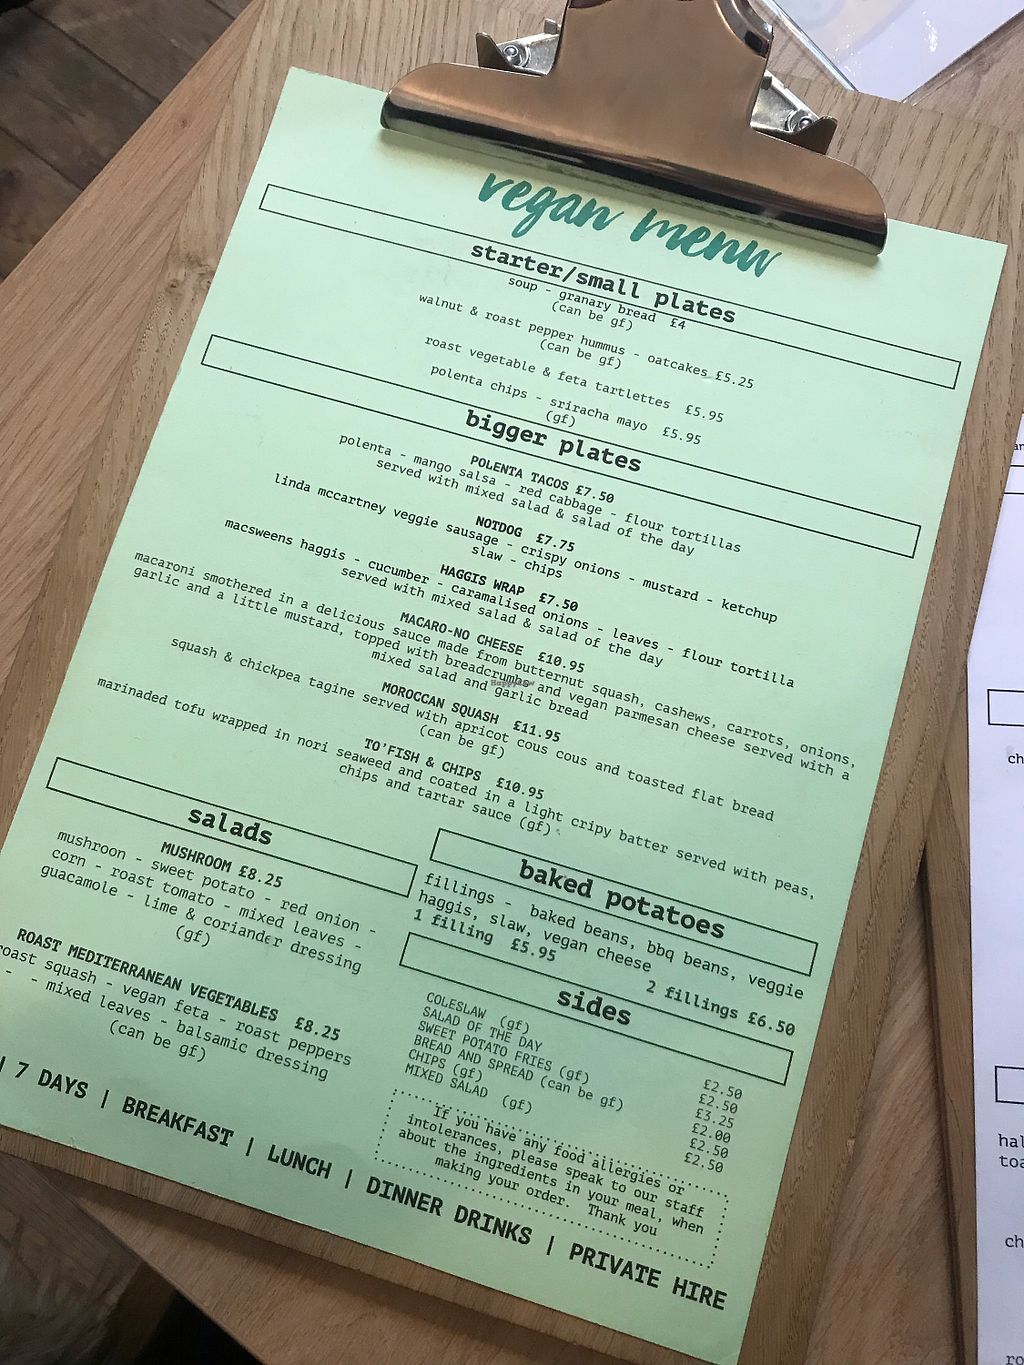 vegan menu
starter/small plates
soup - granary bread £4
(can be gf)
walnut & roast pepper hummus - oatcakes £5.25
(can be gf)
roast vegetable & feta tartlettes £5.95
polenta chips - sriracha mayo £5.95
(gf)
bigger plates
POLENTA TACOS £7.50
polenta - mango salsa - red cabbage - flour tortillas
served with mixed salad & salad of the day
NOTDOG £7.75
linda mccartney veggie sausage - crispy onions - mustard - ketchup
slaw - chips
HAGGIS WRAP £7.50
macsweens haggis - cucumber - caramalised onions - leaves - flour tortilla
served with mixed salad & salad of the day
MACARO-NO CHEESE £10.95
macaroni smothered in a delicious sauce made from butternut squash, cashews, carrots, onions,
garlic and a little mustard, topped with breadcrumbs and vegan parmesan cheese served with a
mixed salad and garlic bread
HappyCow
MOROCCAN SQUASH £11.95
squash & chickpea tagine served with apricot cous cous and toasted flat bread
(can be gf)
TO'FISH & CHIPS £10.95
marinaded tofu wrapped in nori seaweed and coated in a light cripy batter served with peas,
chips and tartar sauce (gf)
salads
MUSHROOM £8.25
mushroon - sweet potato - red onion -
corn - roast tomato - mixed leaves -
guacamole - lime & coriander dressing
(gf)
ROAST MEDITERRANEAN VEGETABLES £8.25
roast squash - vegan feta - roast peppers
- - mixed leaves - balsamic dressing
(can be gf)
baked potatoes
fillings - baked beans, bbq beans, veggie
haggis, slaw, vegan cheese
1 filling £5.95
2 fillings £6.50
sides
COLESLAW (gf) £2.50
SALAD OF THE DAY £2.50
SWEET POTATO FRIES (gf) £3.25
BREAD AND SPREAD (can be gf) £2.00
CHIPS (gf) £2.50
MIXED SALAD (gf) £2.50
If you have any food allergies or
intolerances, please speak to our staff
about the ingredients in your meal, when
making your order. Thank you
| 7 DAYS | BREAKFAST | LUNCH | DINNER DRINKS | PRIVATE HIRE